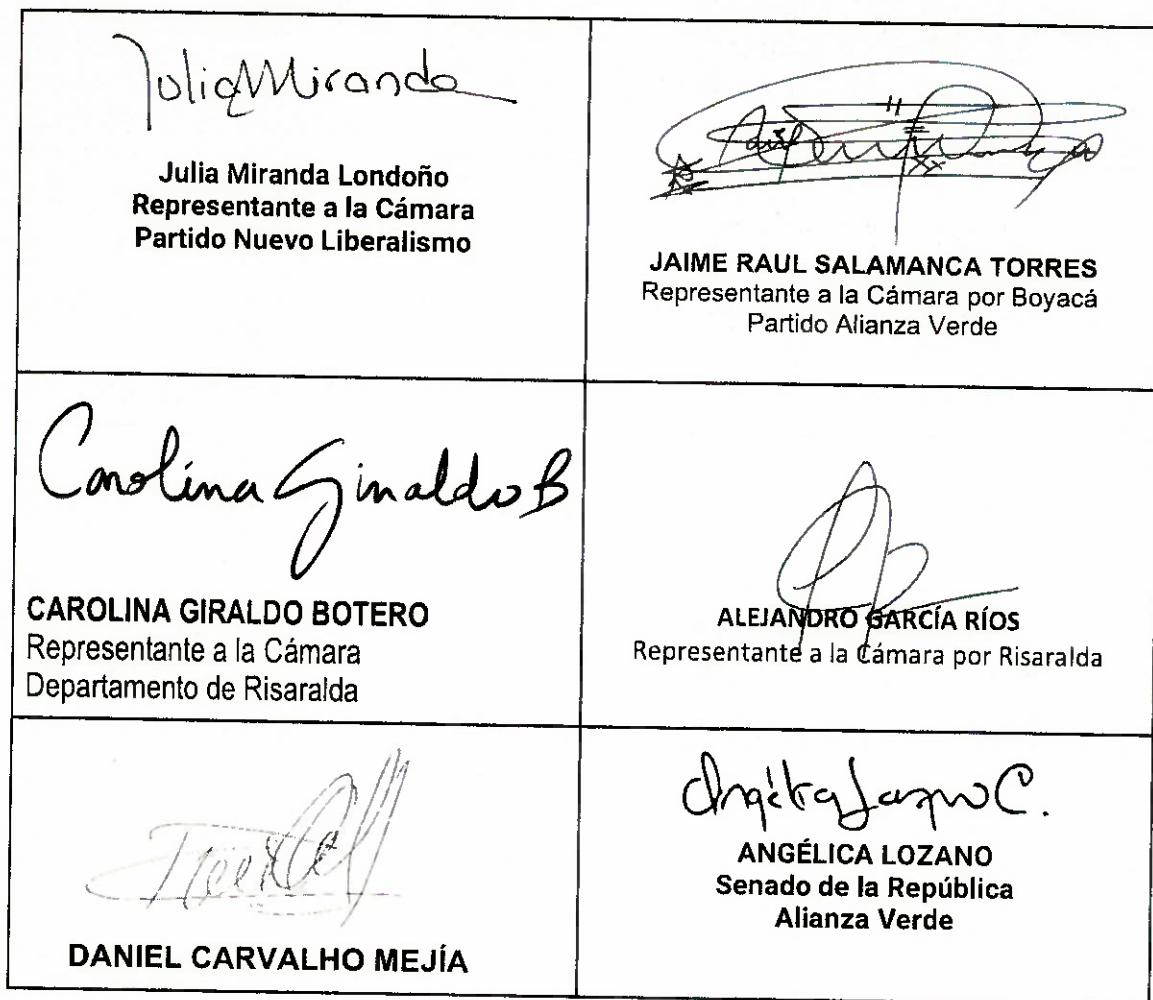 Julia Miranda
Julia Miranda Londoño
Representante a la Cámara
Partido Nuevo Liberalismo
JAIME RAUL SALAMANCA TORRES
Representante a la Cámara por Boyacá
Partido Alianza Verde
Carolina Giraldo B
CAROLINA GIRALDO BOTERO
Representante a la Cámara
Departamento de Risaralda
ALEJANDRO GARCÍA RÍOS
Representante a la Cámara por Risaralda
DANIEL CARVALHO MEJÍA
Angélica Lozano C.
ANGÉLICA LOZANO
Senado de la República
Alianza Verde